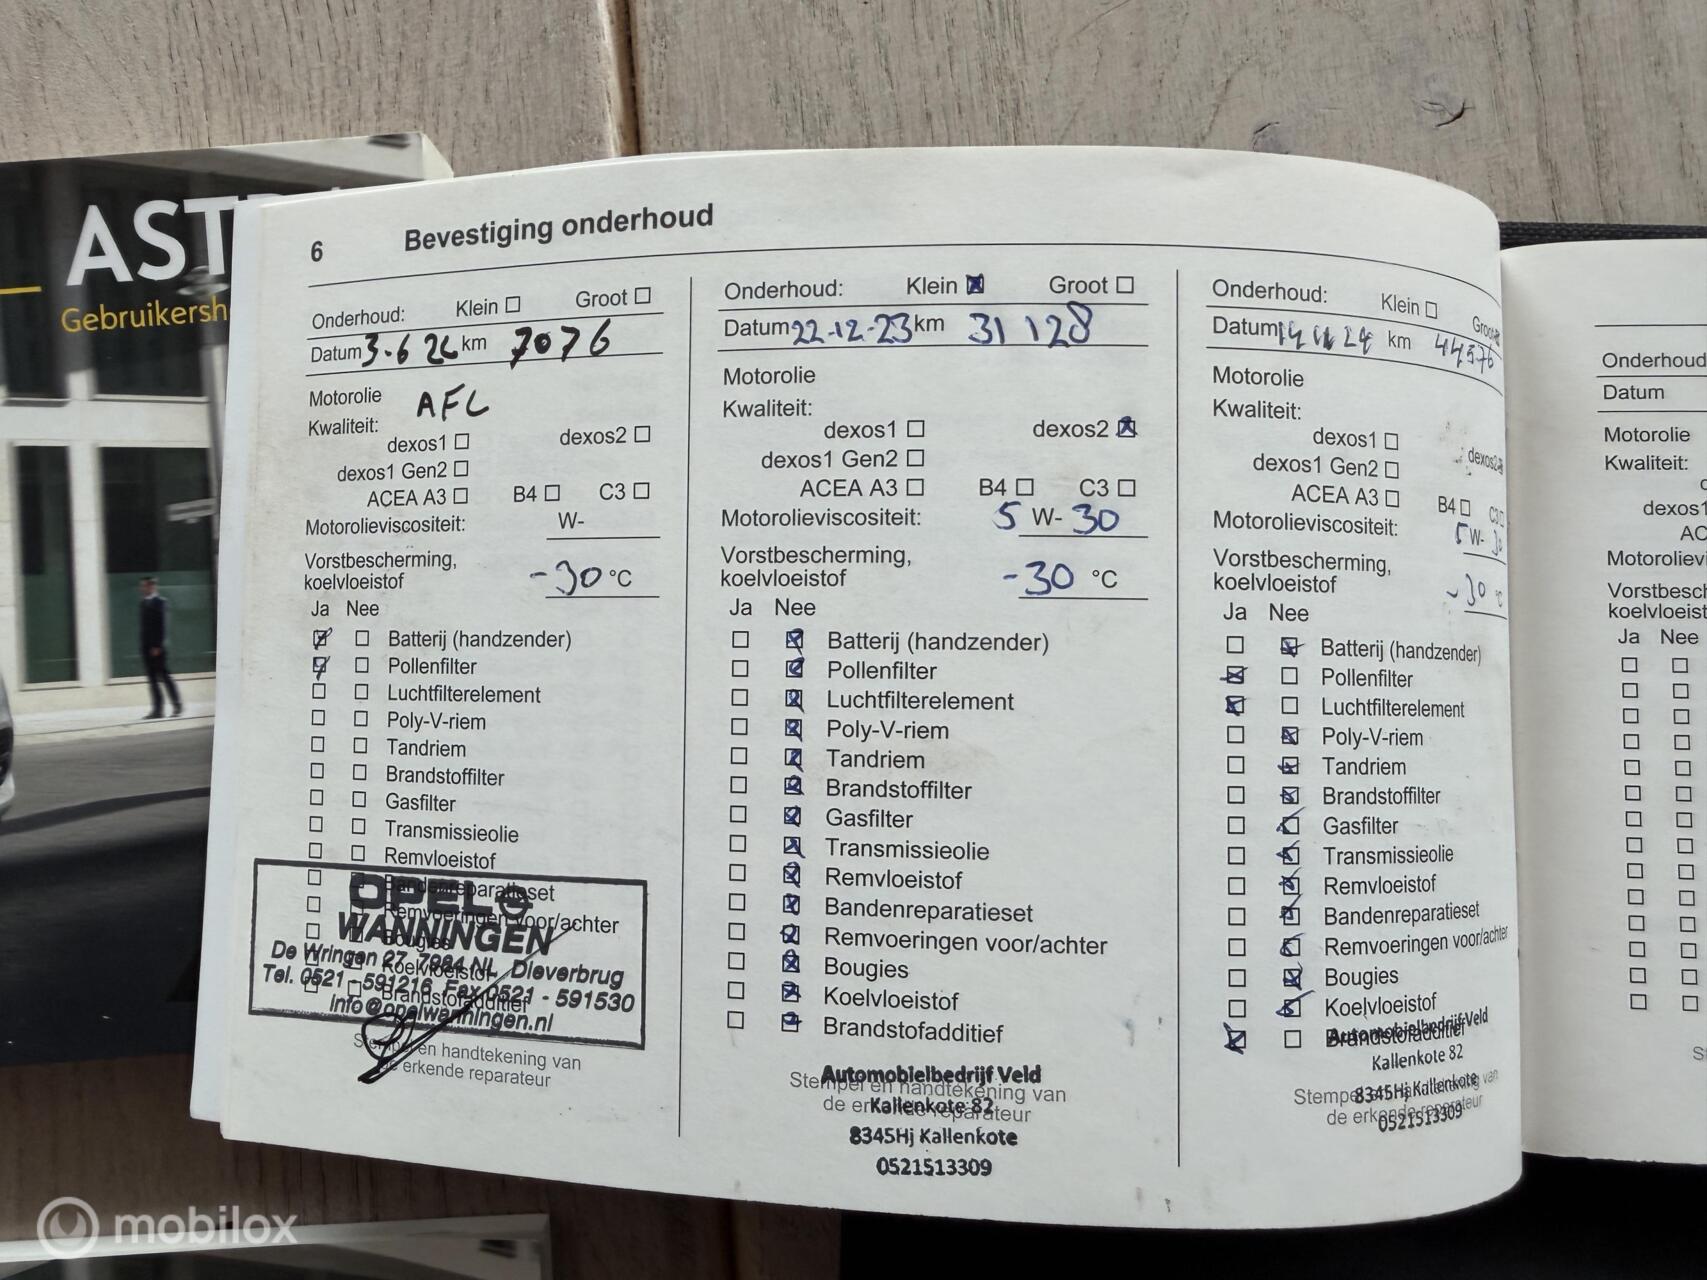 AST
Gebruikersh
6 Bevestiging onderhoud
Onderhoud: Klein Groot
Datum km 7076
Motorolie AFL
Kwaliteit:
dexos1 dexos2
dexos1 Gen2
ACEA A3 B4 C3
Motorolieviscositeit: W-
Vorstbescherming,
koelvloeistof -30 °C
Ja Nee
Batterij (handzender)
Pollenfilter
Luchtfilterelement
Poly-V-riem
Tandriem
Brandstoffilter
Gasfilter
Transmissieolie
Remvloeistof
Bandenreparatieset
Remvoeringen voor/achter
Bougies
Koelvloeistof
Brandstofadditief
OPEL
WANNINGEN
De Wringen 27, 7984 NL Dieverbrug
Tel. 0521 - 591216 Fax 0521 - 591530
info@opelwanningen.nl
Stempel en handtekening van
de erkende reparateur
Onderhoud: Klein Groot
Datum 22-12-23 km 31 128
Motorolie
Kwaliteit:
dexos1 dexos2
dexos1 Gen2
ACEA A3 B4 C3
Motorolieviscositeit: 5 W- 30
Vorstbescherming,
koelvloeistof -30 °C
Ja Nee
Batterij (handzender)
Pollenfilter
Luchtfilterelement
Poly-V-riem
Tandriem
Brandstoffilter
Gasfilter
Transmissieolie
Remvloeistof
Bandenreparatieset
Remvoeringen voor/achter
Bougies
Koelvloeistof
Brandstofadditief
Automobielbedrijf Veld
Kallenkote 82
8345Hj Kallenkote
0521513309
Stempel en handtekening van
de erkende reparateur
Onderhoud: Klein Groot
Datum km 44576
Motorolie
Kwaliteit:
dexos1 dexos2
dexos1 Gen2
ACEA A3 B4 C3
Motorolieviscositeit: 5 W- 30
Vorstbescherming,
koelvloeistof -30 °C
Ja Nee
Batterij (handzender)
Pollenfilter
Luchtfilterelement
Poly-V-riem
Tandriem
Brandstoffilter
Gasfilter
Transmissieolie
Remvloeistof
Bandenreparatieset
Remvoeringen voor/achter
Bougies
Koelvloeistof
Brandstofadditief
Automobielbedrijf Veld
Kallenkote 82
8345Hj Kallenkote
0521513309
Stempel en handtekening van
de erkende reparateur
Onderhoud
Datum
Motorolie
Kwaliteit:
dexos1
AC
Motorolievi
Vorstbesch
koelvloeist
Ja Nee
mobilox